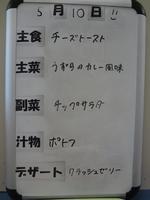 5月10日
主食 チーズトースト
主菜 うずらのカレー風味
副菜 チップサラダ
汁物 ポトフ
デザート クラッシュゼリー